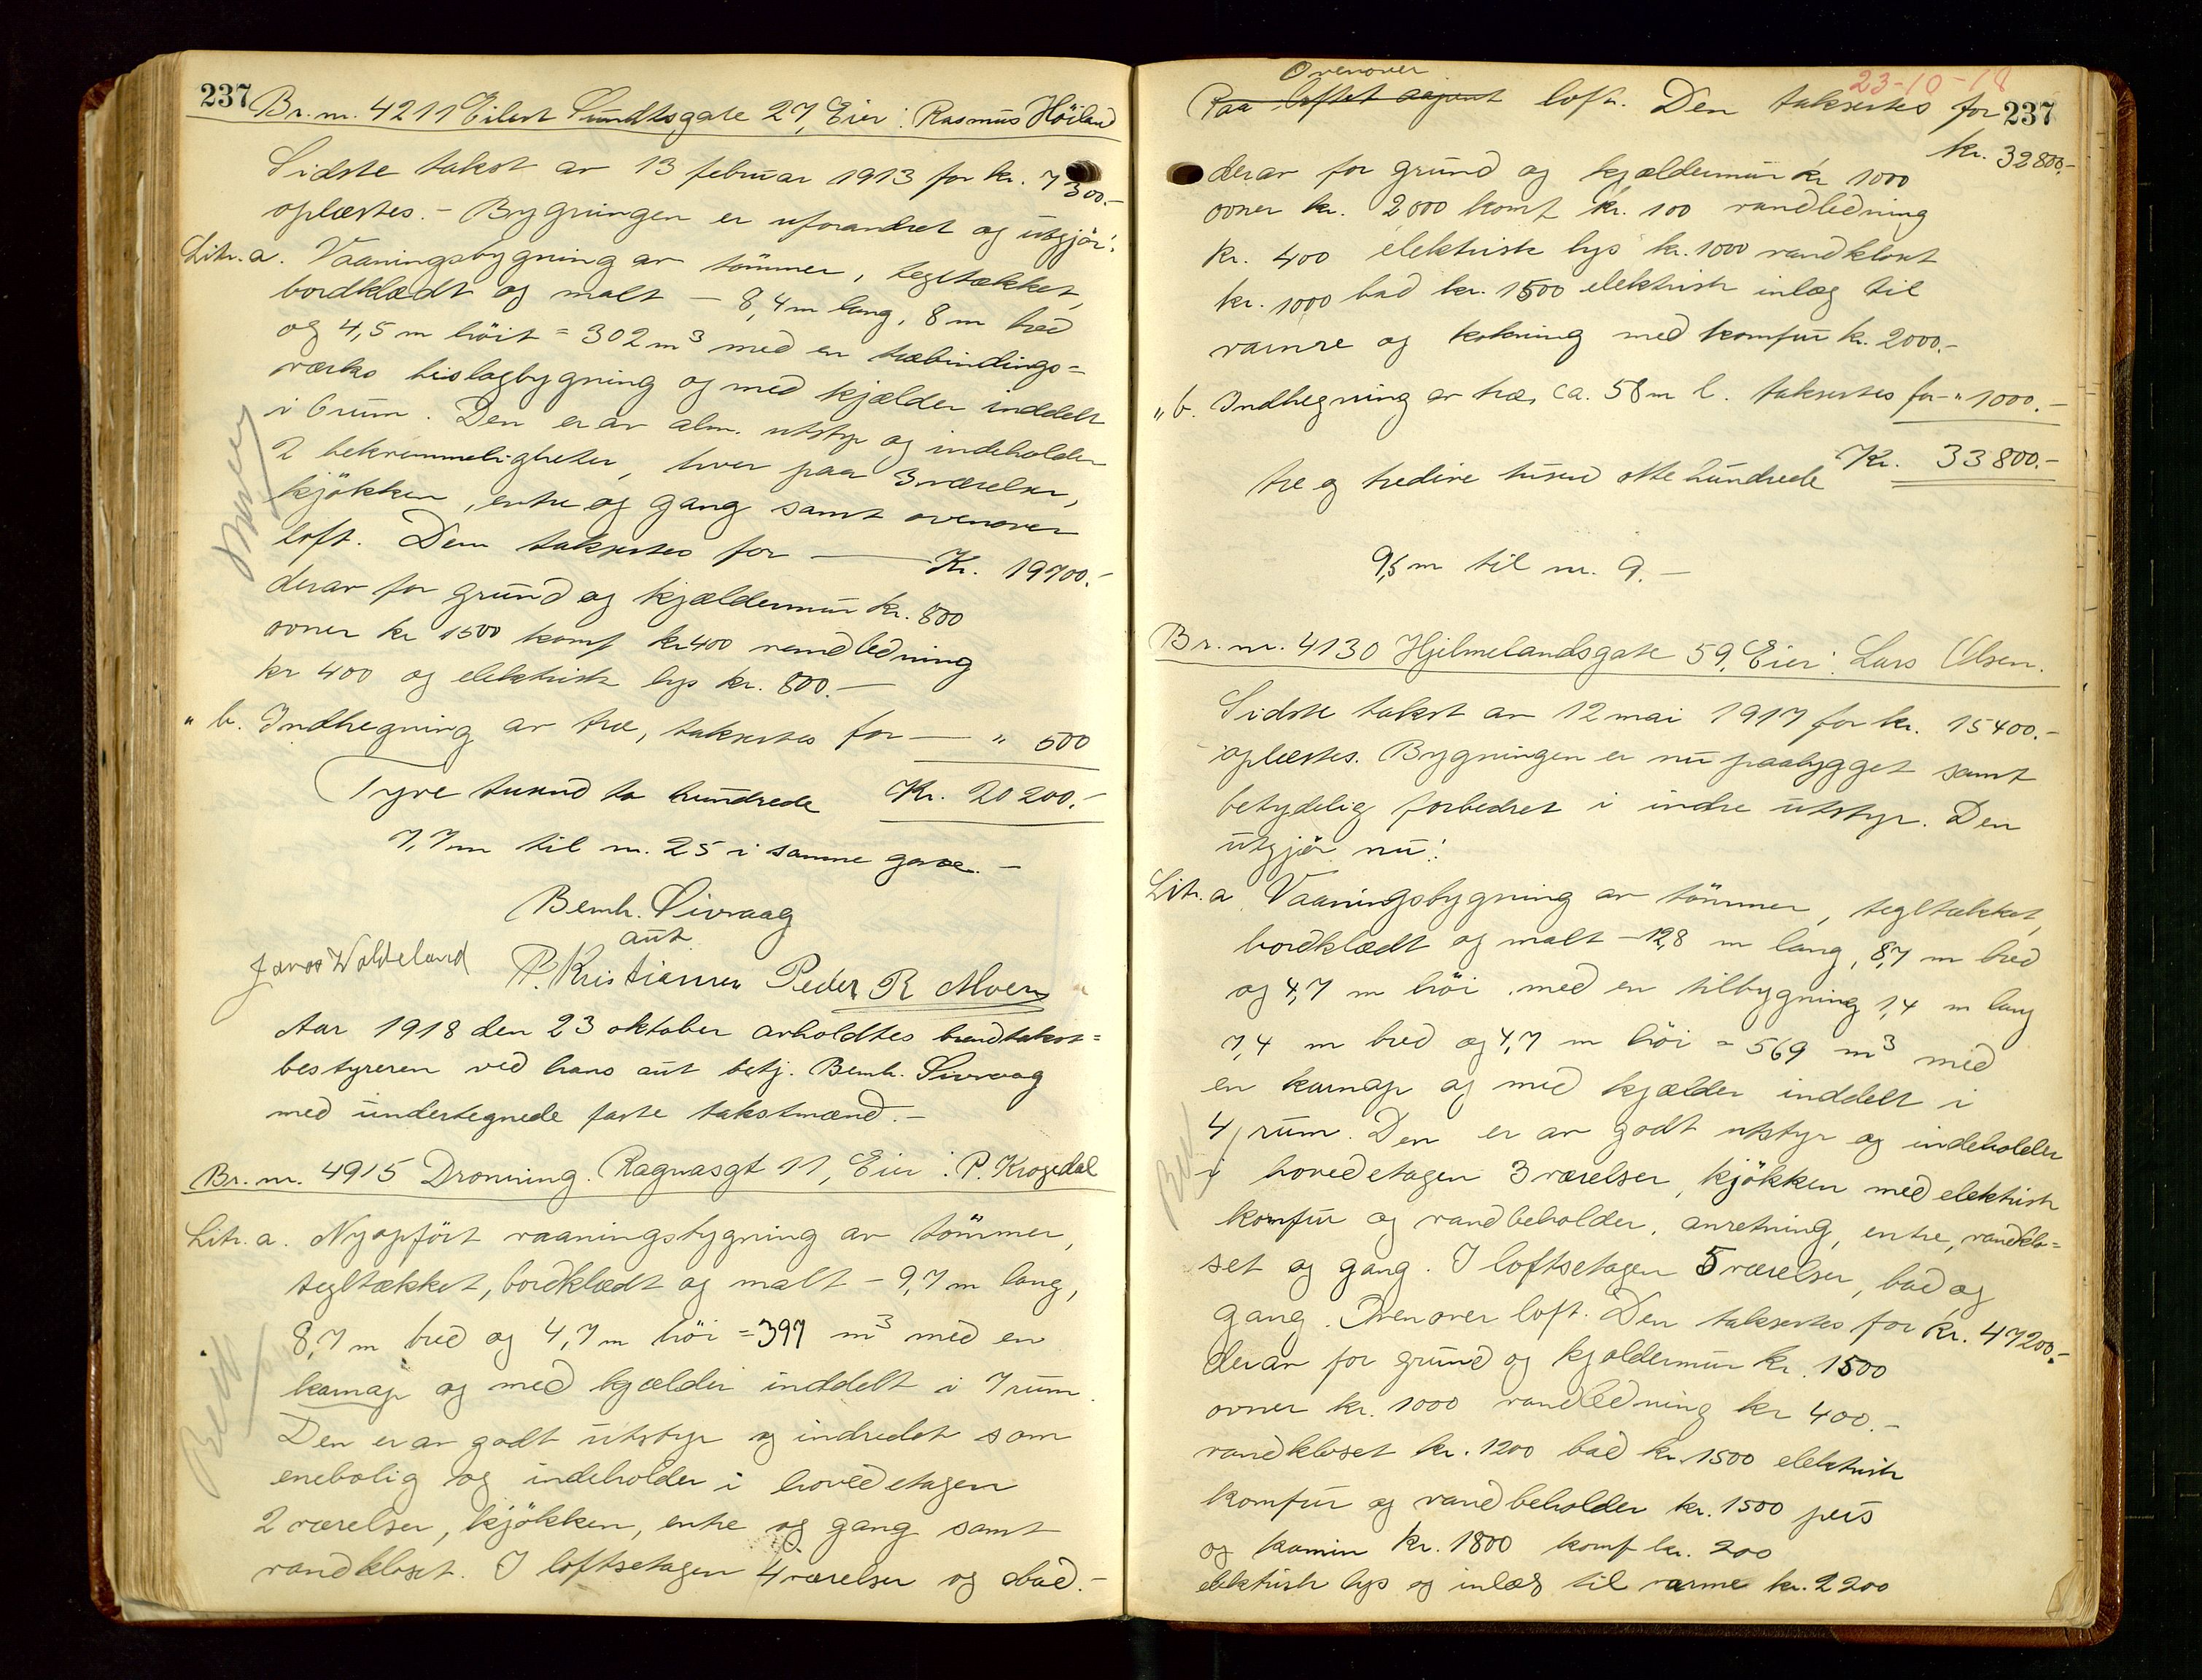 237 Br. nr. 4211 Eilert Sundtsgate 27, Eier: Rasmus Höiland
Sidste takst av 13 februar 1913 for kr. 7300.-
oplæstes. - Bygningen er uforandret og utgjör:
Litr. a. Vaaningsbygning av tömmer, tegltækket,
bordklædt og malt - 8,4 m lang, 8 m bred
og 4,5 m höit = 302 m³ med en træbindings=
verks bislagbygning og med kjælder inddelt
i 6 rum. Den er av alm. utstyr og indeholder
2 bekvemmeligheter, hver paa 3 værelser,
kjökken, entre og gang samt ovenover
loft. Den takseres for — Kr. 19700.-
derav for grund og kjældermur kr. 800
ovner kr 1500 komf kr 400 vandledning
kr 400 og elektrisk lys kr. 800.-
" b. Indhegning av træ, takseres for — " 500
Tyve tusend to hundrede Kr. 20200.-
7,7 m til nr. 25 i samme gate. -
Bernh. Sivraag
aut.
Jonas Woldeland P. Kristiansen Peder R Moen
Aar 1918 den 23 oktober avholdtes brandtakst=
bestyreren ved hans aut betj. Bernh. Sivraag
med undertegnede faste takstmænd. -
Br. nr. 4915 Dronning Ragnasgt 11, Eier: P. Krogedal
Litr. a. Nyopfört vaaningsbygning av tömmer,
tegltækket, bordklædt og malt - 9,7 m lang,
8,7 m bred og 4,7 m höi = 397 m³ med en
karnap og med kjælder inddelt i 7 rum.
Den er av godt utstyr og indredet som
enebolig og indeholder i hovedetagen
2 værelser, kjökken, entre og gang samt
vandkloset. I loftsetagen 4 værelser og bad.-
23-10-18
Ovenover
Paa loftet loft. Den takseres for 237
kr. 32800.-
derav for grund og kjældermur kr 1000
ovner kr. 2000 komf kr. 100 vandledning
kr. 400 elektrisk lys kr. 1000 vandkloset
kr. 1000 bad kr. 1500 elektrisk inlæg til
varme og kokning med komfur kr. 2000.-
" b. Indhegning av træ, ca. 58 m l. takseres for - " 1000.-
Kr. 33800.-
tre og tredive tusend otte hundrede
9,5 m til nr. 9. -
Br. nr. 4130 Hjelmelandsgate 59, Eier: Lars Olsen.
Sidste takst av 12 mai 1917 for kr. 15400.-
oplæstes. Bygningen er nu paabygget samt
betydelig forbedret i indre utstyr. Den
utgjör nu:
Litr. a. Vaaningsbygning av tömmer, tegltækket,
bordklædt og malt - 12,8 m lang, 8,7 m bred
og 4,7 m höi med en tilbygning 1,4 m lang
7,4 m bred og 4,7 m höi = 569 m³ med
en karnap og med kjælder inddelt i
4 rum. Den er av godt utstyr og indeholder
i hovedetagen 3 værelser, kjökken med elektrisk
komfur og vandbeholder, anretning, entre, vandklo=
set og gang. I loftsetagen 5 værelser, bad og
gang. Ovenover loft. Den takseres for kr. 47200.-
derav for grund og kjældermur kr. 1500
ovner kr. 1000 vandledning kr 400.-
vandkloset kr. 1200 bad kr. 1500 elektrisk
komfur og vandbeholder kr. 1500 peis
og kamin kr. 1800 komf kr. 200
elektrisk lys og inlæg til varme kr. 2200